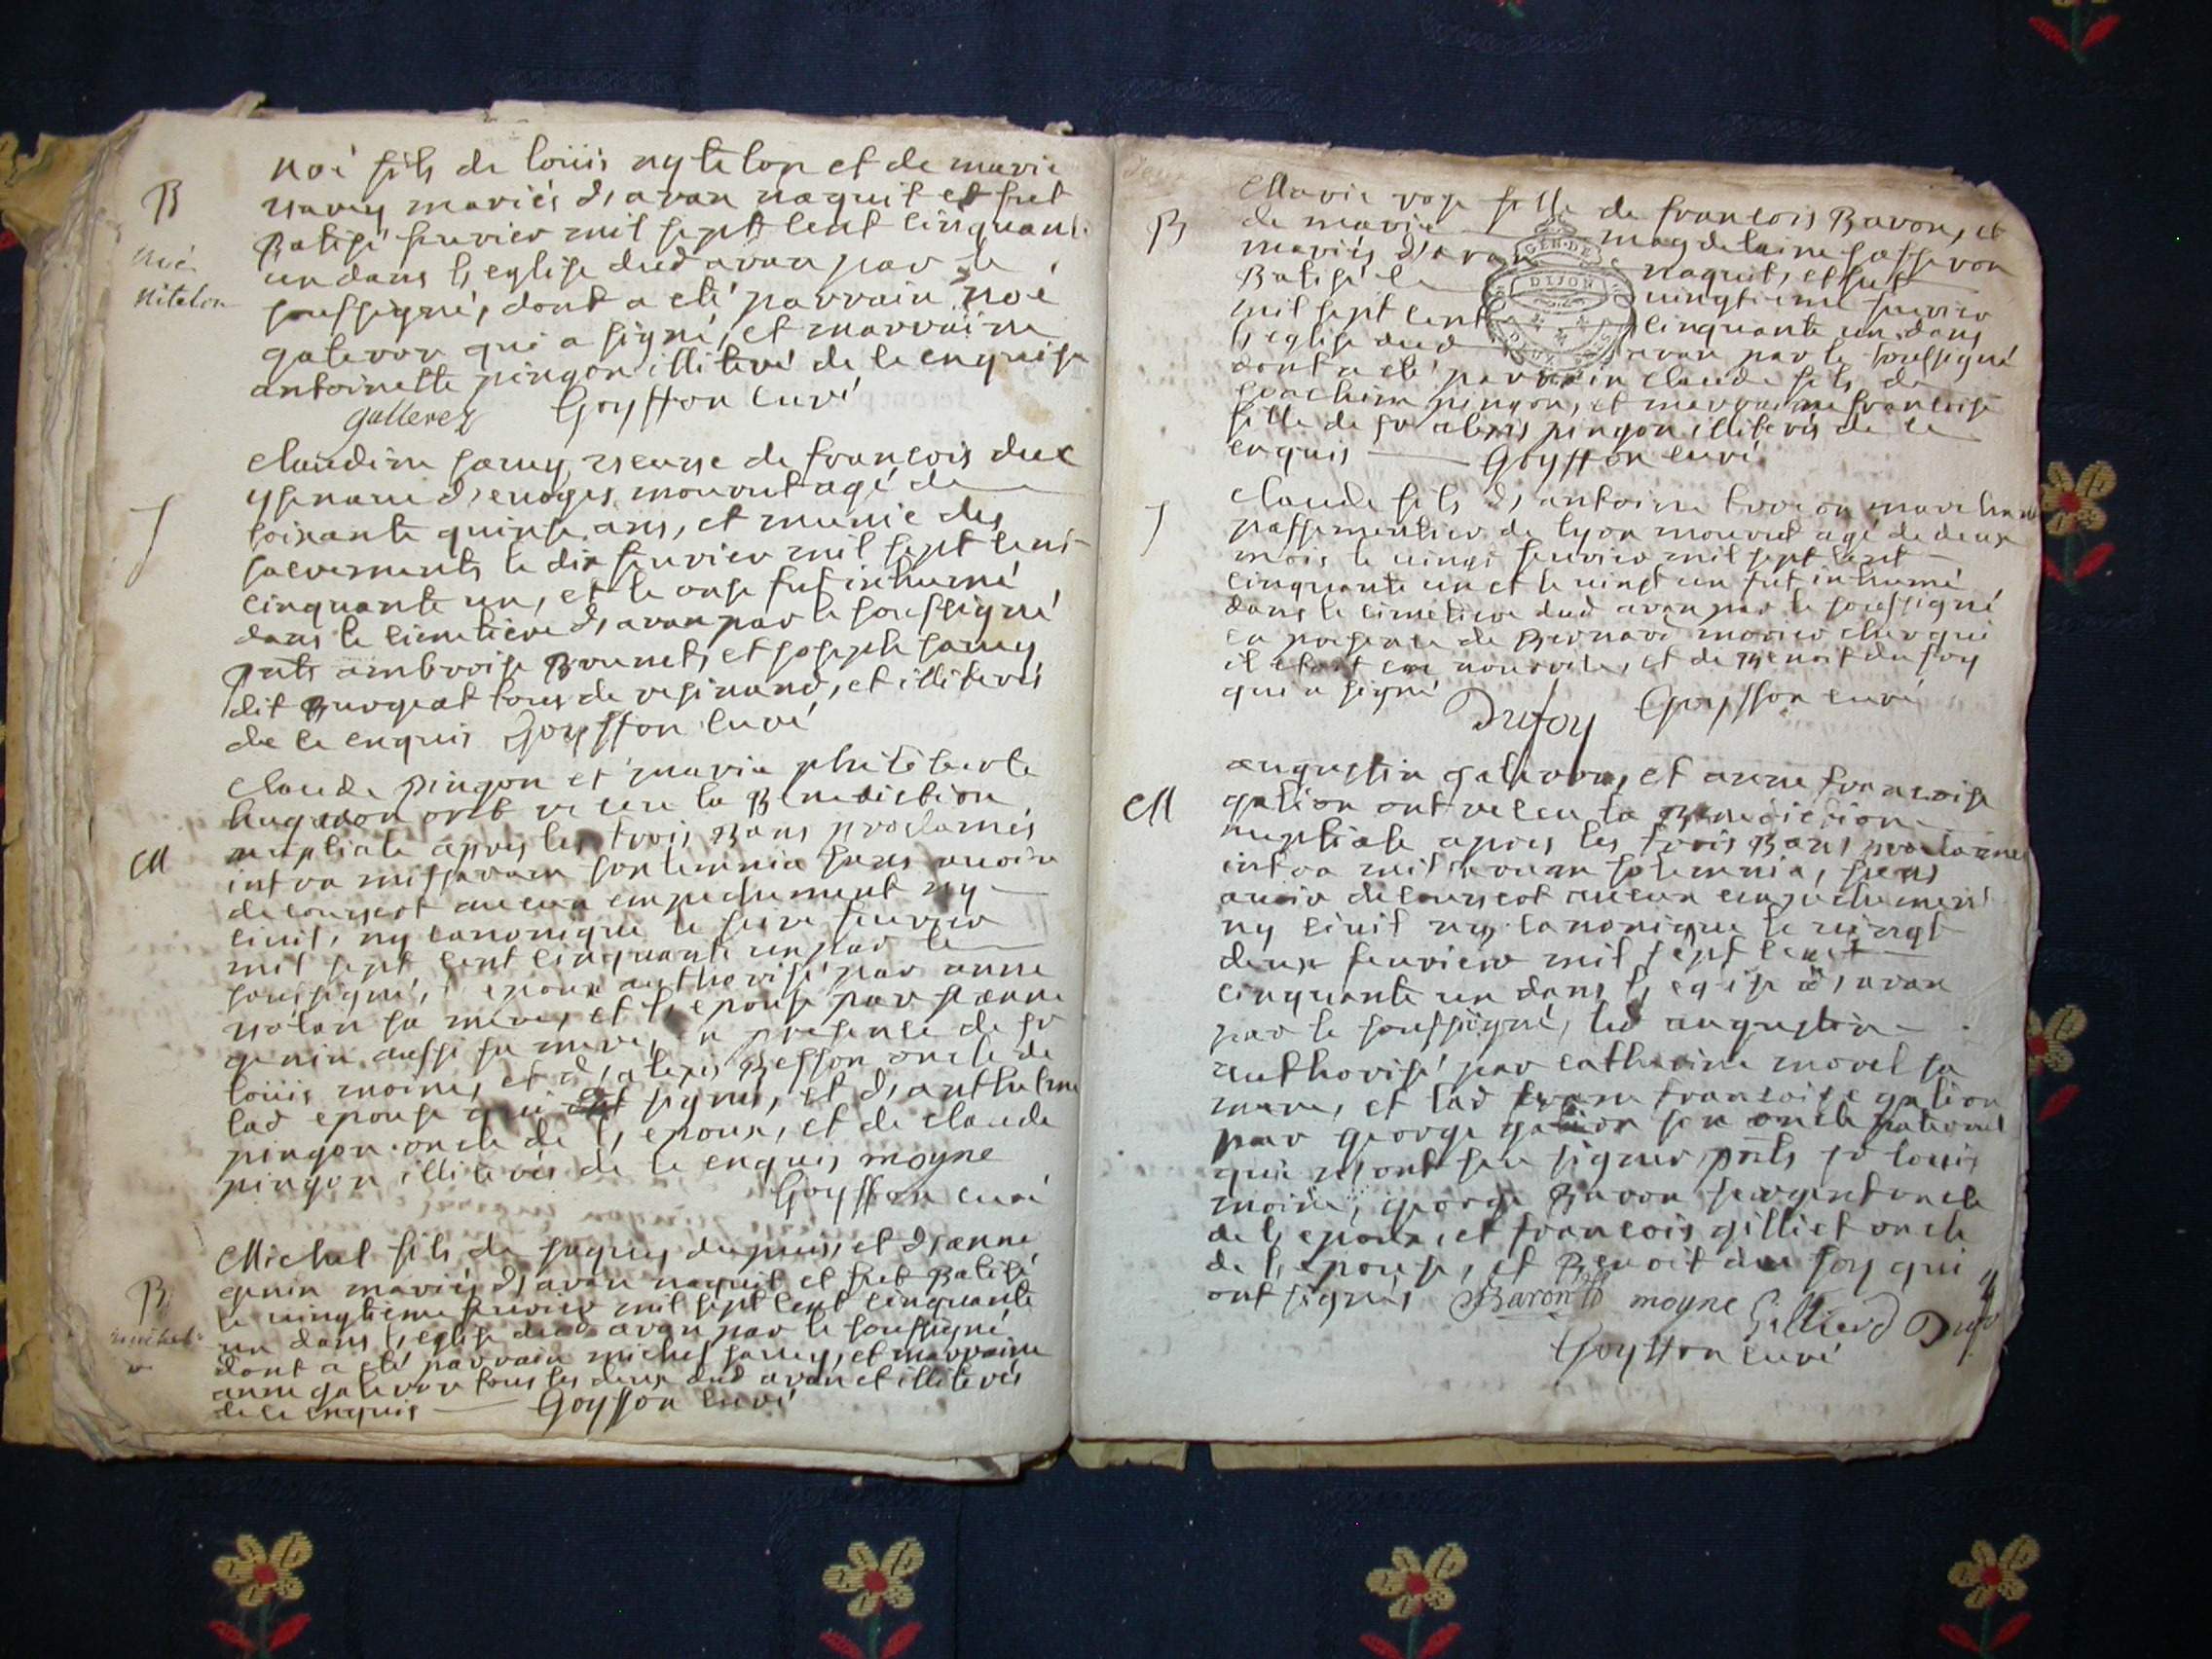 B
noé fils de loüis nytelon et de marie
mariés d'avan naquit et fut
Batisé feuvier mil sept cent cinquante
un dans l'eglise dud avan par le
soussigné, dont a eté parrain noé
galeron qui a signé, et marraine
antoinette pingon illiteré de ce enquise
Goysson curé
noé
nitelon
claudine veuve de françois
mourut agé de
soixante quinse ans, et munie des
sacrements le dix feuvier mil sept cent
cinquante un, et le onse fut inhumé
dans le cimetiere d'avan par le soussigné
pnts ambroise Brunet, et joseph
dit tous de et illiterés
de ce enquis Goysson curé
M
claude pingon et marie
ont receu la Benediction
nuptiale apres les trois Bans proclamés
intra missarum solemnia sans avoir
decouvert aucun empechement ny
civil, ny canonique le seise feuvier
mil sept cent cinquante un par le
soussigné, l'epoux authorisé par anne
sa mere, et l'epouse par jeanne
genin aussi sa mere, en presence de sr
loüis moine, et d'alexis Besson oncle de
lad epouse qui ont signés, et d'anthelme
pingon oncle de l'epoux, et de claude
pingon illiterés de ce enquis moyne
Goysson curé
B
michel
Michel fils de jaques dupuis, et d'anne
genin mariés d'avan naquit et fut Batisé
le vingtieme feuvier mil sept cent cinquante
un dans l'eglise dud avan par le soussigné
dont a eté parrain michel et marraine
anne galeron tous les deux dud avan et illiterés
de ce enquis Goysson curé
B
Marie rose fille de francois Baron, et
de marie magdelaine
mariés d'avan naquit, et fut
Batisé le vingtieme feuvier
mil sept cent cinquante un dans
l'eglise dud avan par le soussigné
dont a eté parrain claude fils de
joachim pingon, et marraine francoise
fille de sr alexis pingon illiterés de ce
enquis Goysson curé
DIJON
claude fils d'antoine marchand
passementier de lyon mourut agé de deux
mois le vingt feuvier mil sept cent
cinquante un et le vingt un fut inhumé
dans le cimetiere dud avan par le soussigné
en presence de Bernard morier ches qui
il etoit en nourrice, et de Benoit du foy
qui a signé
Dufoy Goysson curé
M
augustin galeron, et anne francoise
galion ont receu la Benediction
nuptiale apres les trois Bans proclamés
intra missarum solemnia, sans
avoir decouvert aucun empechement
ny civil ny canonique le vingt
deux feuvier mil sept cent
cinquante un dans l'eglise d'avan
par le soussigné, led augustin
authorisé par catherine morel sa
mere, et lad anne francoise galion
par george galion son oncle paternel
qui n'ont sceu signer, pnts sr loüis
moine, george Baron sergent oncle
de l'epoux, et francois gilliet oncle
de l'epouse, et Benoit du foy qui
ont signés Baron moyne Gillierd Dufoy
Goysson curé